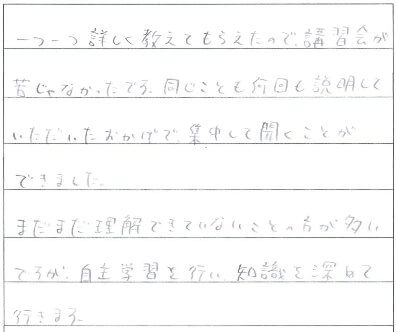 一つ一つ詳しく教えてもらえたので、講習会が
苦じゃなかったです。同じことも何回も説明して
いただいたおかげで、集中して聞くことが
できました。
まだまだ理解できていないことの方が多い
ですが、自主学習を行い知識を深めて
行きます。